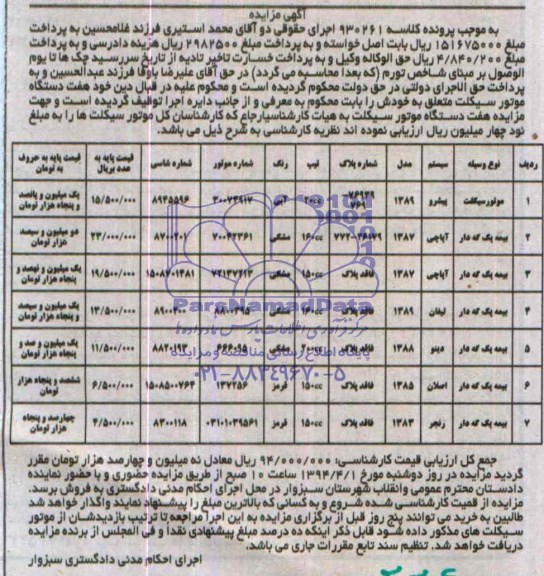 آگهی مزایده
به موجب پرونده کلاسه ۹۳۰۲۶۱ اجرای حقوقی دو آقای محمد استیری فرزند غلامحسین به پرداخت
مبلغ ۱۵۱۶۷۵۰۰۰ ریال بابت اصل خواسته و به پرداخت مبلغ ۲۹۸۲۵۰۰ ریال هزینه دادرسی و به پرداخت
۴/۸۴۰/۲۰۰ ریال حق الوکاله وکیل و به پرداخت خسارت تاخیر تادیه از تاریخ سررسید چک ها تا یوم
الوصول بر مبنای شاخص تورم (که بعدا محاسبه می گردد) در حق آقای علیرضا باوفا فرزند عبدالحسین و به
پرداخت حق الاجرای دولتی در حق دولت محکوم گردیده است و محکوم علیه در قبال دین خود هفت دستگاه
موتور سیکلت متعلق به خودش را بابت محکوم به معرفی و از جانب دایره اجرا توقیف گردیده است و جهت
مزایده هفت دستگاه موتور سیکلت به هیات کارشناسی ارجاع که کارشناسان کل موتور سیکلت ها را به مبلغ
نود چهار میلیون ریال ارزیابی نموده اند نظریه کارشناسی به شرح ذیل می باشد.
ردیف نوع وسیله سیستم مدل شماره پلاک تیپ رنگ شماره موتور شماره شاسی قیمت پایه به عدد بریال قیمت پایه به حروف به تومان
۱ موتورسیکلت پیشرو ۱۳۸۹ ۷۶۹۳۹ ۷۶۹ ۲۰۰cc آبی ۳۰۰۷۳۹۱۷ ۸۹۴۵۵۹۶ ۱۵/۵۰۰/۰۰۰ یک میلیون و پانصد و پنجاه هزار تومان
۲ بیمه یک که دار آپاچی ۱۳۸۷ ۷۷۲-۳۶۱۷۹ ۱۶۰cc مشکی ۷۰۰۴۲۳۶۱ ۸۷۰۰۲۰۱ ۲۳/۰۰۰/۰۰۰ دو میلیون و سیصد هزار تومان
۳ بیمه یک که دار آپاچی ۱۳۸۷ فاقد پلاک ۱۵۰cc مشکی ۷۲۱۳۷۶۲۳ ۱۵۰۸۷۰۱۳۸۱ ۱۹/۵۰۰/۰۰۰ یک میلیون و نهصد و پنجاه هزار تومان
۴ بیمه یک که دار لیفان ۱۳۸۹ فاقد پلاک ۲۰۰cc مشکی ۸۸۰۰۳۹۵ ۸۹۰۰۲۰۰ ۱۳/۵۰۰/۰۰۰ یک میلیون و سیصد و پنجاه هزار تومان
۵ بیمه یک که دار دینو ۱۳۸۸ فاقد پلاک ۲۰۰cc مشکی ۶۶۶۰۹۵ ۸۸۲۰۱۹۳ ۱۱/۵۰۰/۰۰۰ یک میلیون و صد و پنجاه هزار تومان
۶ بیمه یک که دار اصلان ۱۳۸۵ فاقد پلاک ۱۵۰cc قرمز ۱۳۷۲۵۶ ۱۵۰۸۵۰۰۷۶۴ ۶/۵۰۰/۰۰۰ ششصد و پنجاه هزار تومان
۷ بیمه یک که دار رنجر ۱۳۸۳ فاقد پلاک ۱۵۰cc قرمز ۰۳۱۰۱۰۳۹۵۶۱ ۸۳۰۰۱۱۸ ۴/۵۰۰/۰۰۰ چهارصد و پنجاه هزار تومان
ParsNamadData
پایگاه اطلاع رسانی مناقصه و مزایده
۰۲۱-۸۸۳۴۹۶۷۰-۵
جمع کل ارزیابی قیمت کارشناسی: ۹۴/۰۰۰/۰۰۰ ریال معادل نه میلیون و چهارصد هزار تومان مقرر
گردید مزایده در روز دوشنبه مورخ ۱۳۹۴/۴/۱ ساعت ۱۰ صبح از طریق مزایده حضوری و با حضور نماینده
دادستان محترم عمومی وانقلاب شهرستان سبزوار در محل اجرای احکام مدنی دادگستری به فروش برسد.
مزایده از قمیت کارشناسی شده شروع و به کسانی که بالاترین مبلغ را پیشنهاد نمایند واگذار خواهد شد
طالبین به خرید می توانند پنج روز قبل از برگزاری مزایده به این اجرا مراجعه تا ترتیب بازدیدشان از موتور
سیکلت های مذکور داده شود قابل ذکر اینکه ده درصد مبلغ پیشنهادی نقدا و فی المجلس از برنده مزایده
دریافت خواهد شد. تنظیم سند تابع مقررات جاری می باشد.
اجرای احکام مدنی دادگستری سبزوار